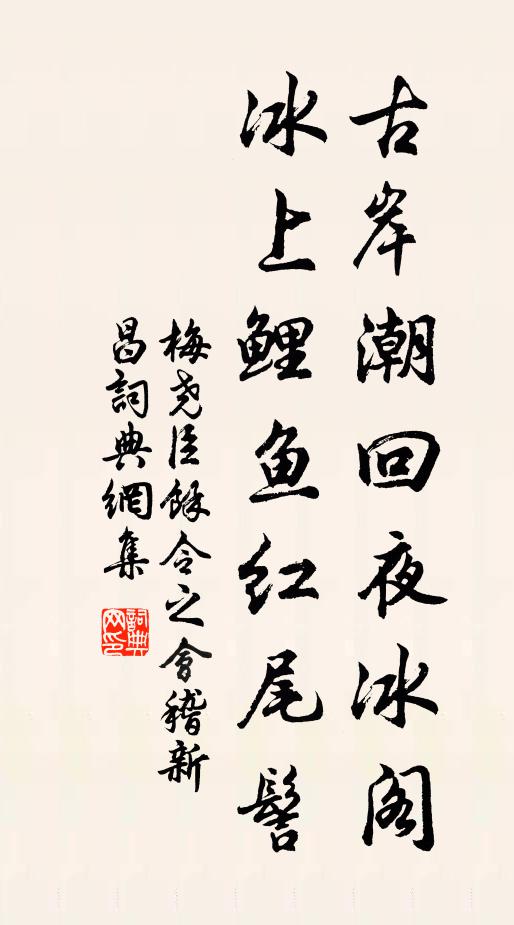 古岸潮回夜冰阁
冰上鲤鱼红尾髻
梅尧臣餘令之會稽新
昌詞典網集
詞典網印